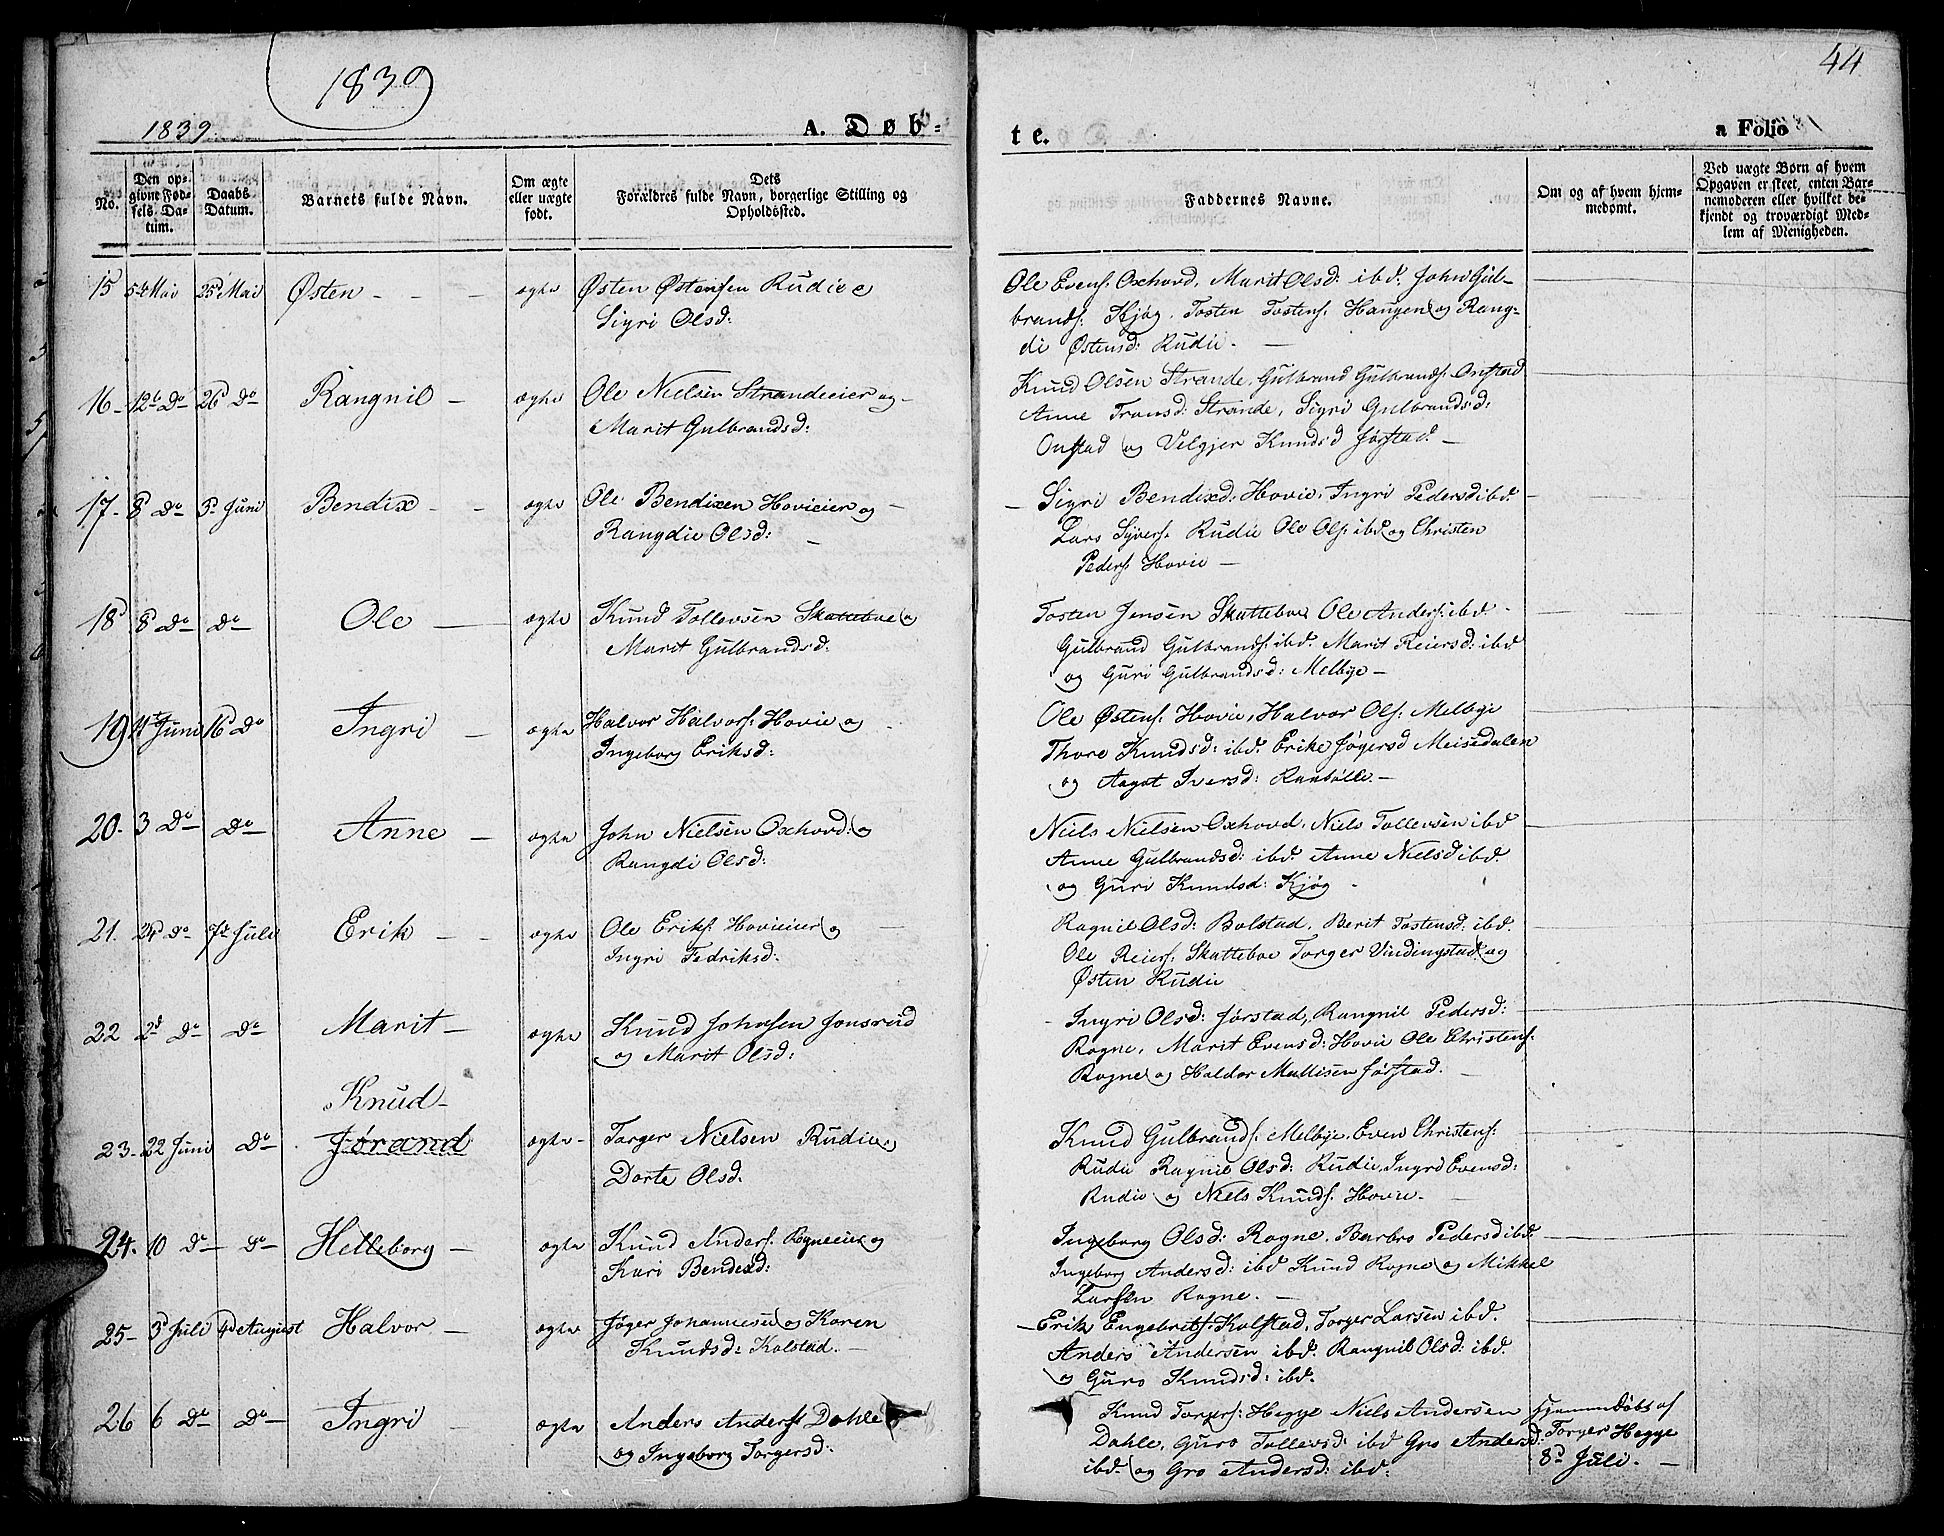 1839
44
1839.
A. Døb-
te.
a Folio
No.
Den op-
givne Fød-
sels. Da-
tum.
Daabs
Datum.
Barnets fulde Navn.
Om ægte
eller uægte
født.
Dets
Forældres fulde Navn, borgerlige Stilling og
Opholdssted.
Faddernes Navne.
Om og af hvem hjem-
medømt.
Ved uægte Børn af hvem
Opgaven er skeet, enten Bar-
nemoderen eller hvilket be-
kjendt og troværdigt Med-
lem af Menigheden.
15 5te Mai 25d Mai Østen - - - ægte Østen Østensen Rudie og
Sigri Olsd:
Ole Evens: Oxhovd, Marit Olsd: ibd. John Gul-
brands: Kjøg. Tosten Tostens: Haugen og Rang-
di Østensd: Rudie. -
16- 12te Do 26d Do Rangnil - ægte Ole Nielsen Strandeeier og -
Marit Gulbrandsd:
Knud Olsen Strande, Gulbrand Gulbrands: Onstad
Anne Fransd: Strande, Sigri Gulbrandsd:
Onstad og Velgjer Knudsd Jørstad. -
17- 8 Do 3d Juni Bendix - - ægte Ole Bendixen Hovieier og -
Rangdie Olsd: -
- Sigri Bendixd. Hovie, Ingri Pedersd ibd.
Lars Syvers. Rudie Ole Ols: ibd og Christen
Peders: Hovie -
18d 8d Do Do Ole - ægte Knud Tollevsen Skatteboe og
Marit Gulbrandsd:
Tosten Jensen Skatteboe Ole Anders: ibd.
Gulbrand Gulbrands: ibd. Marit Reiersd: ibd
og Guri Gulbrandsd: Melbye -
19 4de Juni 16d Do Ingri - ægte Halvor Halvors: Hovie og
Ingeborg Eriksd:
Ole Østens: Hovie, Halvor Ols: Melbye
Thore Knudsd: ibd. Erike Jøgersd Meisedalen
og Aagot Iversd:
20. 3 Do Do Anne - ægte John Nielsen Oxhovd: og
Rangdi Olsd:
Niels Nielsen Oxhovd, Niels Tollevsen ibd
Anne Gulbrandsd: ibd. Anne Nielsd ibd.
og Guri Knudsd: Kjøg -
21. 24 Do 7de Juli Erik - - ægte Ole Eriks: Hovieier og -
Ingri Fedriksd:
Ragnil Olsd: Bolstad, Berit Tostensd: ibd.
Ole Reiers: Skatteboe Torger Vindingstad og
Østen Rudie
22 2d Do Do Marit - ægte Knud Johnsen Jonsrud
og Marit Olsd:
- Ingri Olsd: Jørstad, Rangnil Pedersd:
Rogne, Marit Evensd: Hovie Ole Christens:
Rogne og Haldor Mattisen Jørstad. -
Knud-
23- 22 Juni Do Jørand ægte - Torger Nielsen Rudie og
Dorte Olsd.
Knud Gulbrands: Melbye, Even Christens:
Rudie Ragnil Olsd: Rudie, Ingrd Evensd:
Rudie og Niels Knuds: Hovie. -
24. 10 Do Do Helleborg - ægte Knud Anders: Rogneeier og
Kari Bendixd:
Ingeborg Olsd: Rogne, Barbro Pedersd ibd.
Ingeborg Andersd: ibd Knud Rogne og Mikkel
Larsen Rogne. -
25- 3d Juli 4d August Halvor - ægte Jøger Johannesen og Karen
Knudsd: Kolstad. -
- Erik Engebrits: Kolstad, Torger Larsen ibd.
Anders Andersen ibd. Rangnil Olsd: ibd.
og Guro Knudsd: ibd.
26 6 Do Do Ingri - ægte Anders Anders: Dahle
og Ingeborg Torgersd:
Knud Torgers: Hegge Niels Andersen
Dahle, Guro Tollevsd: ibd Gro Andersd:
ibd. og Gro Andersd: ibd:
Hjemmedøbt af
Torger Hegge
8d Juli. -